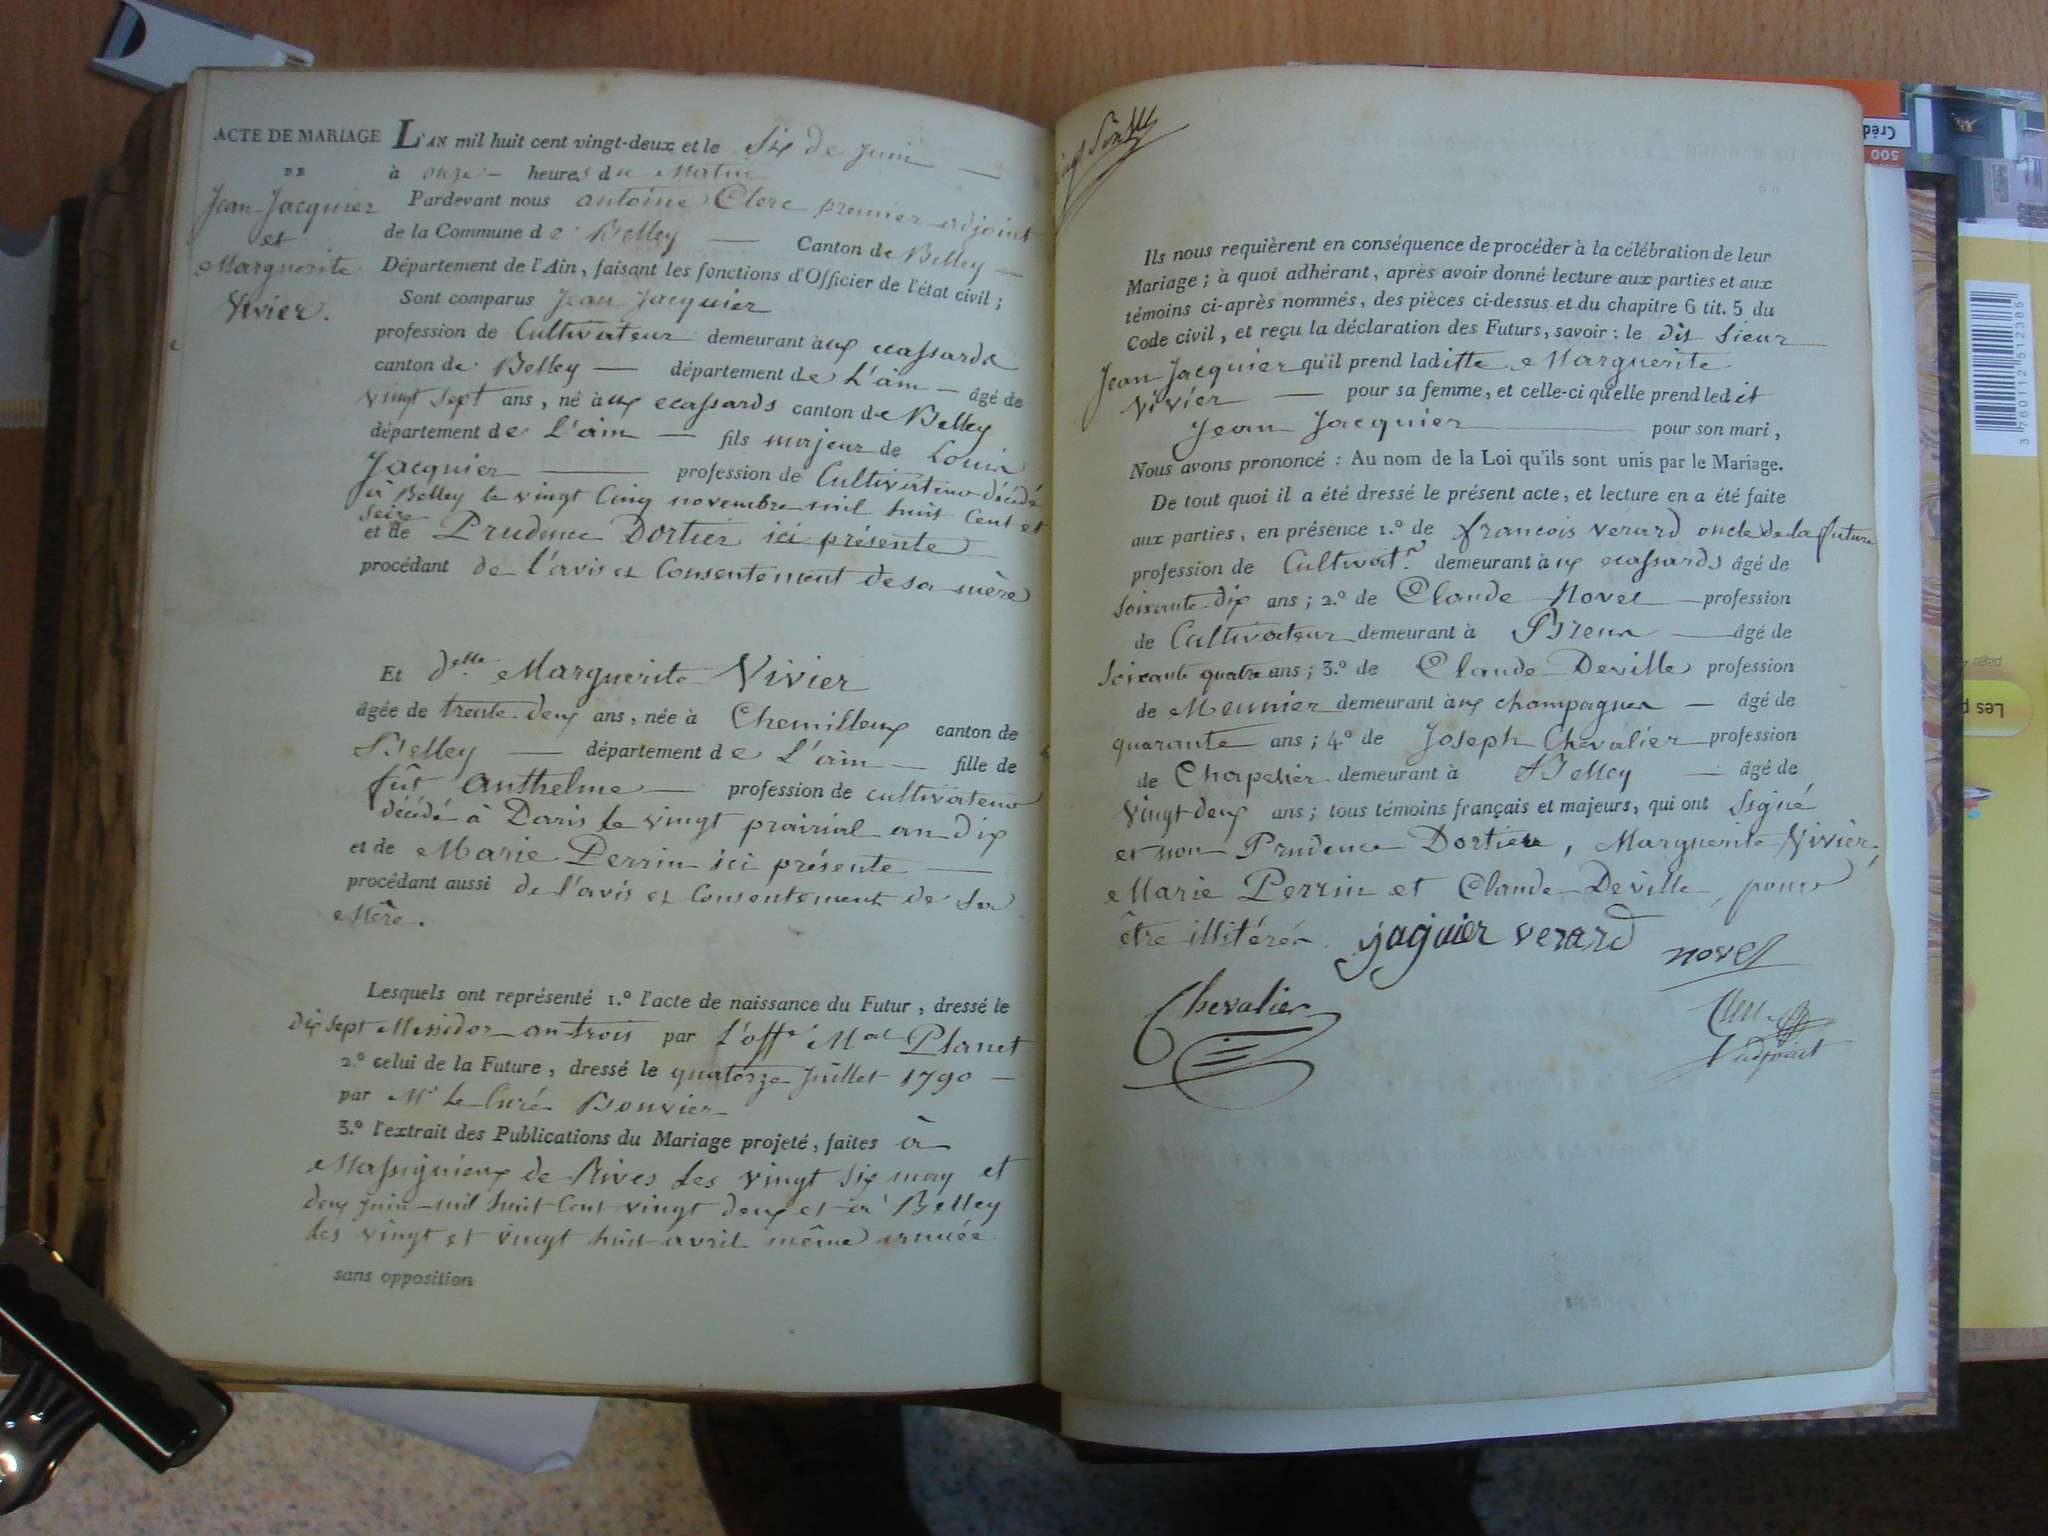 ACTE DE MARIAGE
DE
Jean Jacquier
et
Marguerite
Vivier.
L'AN mil huit cent vingt-deux et le Six de juin
à onze heures du Matin
Pardevant nous antoine Clerc premier adjoint
de la Commune de Belley Canton de Belley
Département de l'Ain, faisant les fonctions d'Officier de l'état civil ;
Sont comparus Jean Jacquier
profession de Cultivateur demeurant aux ecassards
canton de Belley département de L'ain âgé de
vingt sept ans, né aux ecassards canton de Belley
département de L'ain fils majeur de Louis
Jacquier profession de Cultivateur décédé
à Belley le vingt Cinq novembre mil huit Cent et
seize
et de Prudence Dortier ici présente
procédant de l'avis et Consentement de sa mère
Et delle Marguerite Vivier
âgée de trente deux ans, née à Chemilleux canton de
Belley département de L'ain fille de
fût Anthelme profession de cultivateur
décédé à Paris le vingt prairial an dix
et de Marie Perrin ici présente
procédant aussi de l'avis et Consentement de Sa
Mère.
Lesquels ont représenté 1.º l'acte de naissance du Futur, dressé le
dix sept Messidor an trois par l'offr Mal Planet
2.º celui de la Future, dressé le quatorze Juillet 1790
par Mr Le Curé Bouvier
3.º l'extrait des Publications du Mariage projeté, faites à
Massignieux de Rives Les vingt six may et
deux juin mil huit Cent vingt deux et à Belley
les vingt et vingt huit avril même année
sans opposition
Ils nous requièrent en conséquence de procéder à la célébration de leur
Mariage ; à quoi adhérant, après avoir donné lecture aux parties et aux
témoins ci-après nommés, des pièces ci-dessus et du chapitre 6 tit. 5 du
Code civil, et reçu la déclaration des Futurs, savoir : le dit Sieur
Jean Jacquier qu'il prend laditte Marguerite
Vivier pour sa femme, et celle-ci qu'elle prend ledit
Jean Jacquier pour son mari,
Nous avons prononcé : Au nom de la Loi qu'ils sont unis par le Mariage.
De tout quoi il a été dressé le présent acte, et lecture en a été faite
aux parties, en présence 1.º de francois Vérard oncle de la future
profession de Cultivatr demeurant aux ecassards âgé de
soixante dix ans ; 2.º de Claude Novel profession
de Cultivateur demeurant à Brens âgé de
Soixante quatre ans ; 3.º de Claude Deville profession
de Meunier demeurant aux champagnes âgé de
quarante ans ; 4.º de Joseph Chevalier profession
de Chapelier demeurant à Belley âgé de
Vingt deux ans ; tous témoins français et majeurs, qui ont Signé
et non Prudence Dortier, Marguerite Vivier,
Marie Perrin et Claude Deville, pour
être illitérés. jaquier verard novel
Chevalier
l'adjoint
Créd
500
3 760112 512385
Les p